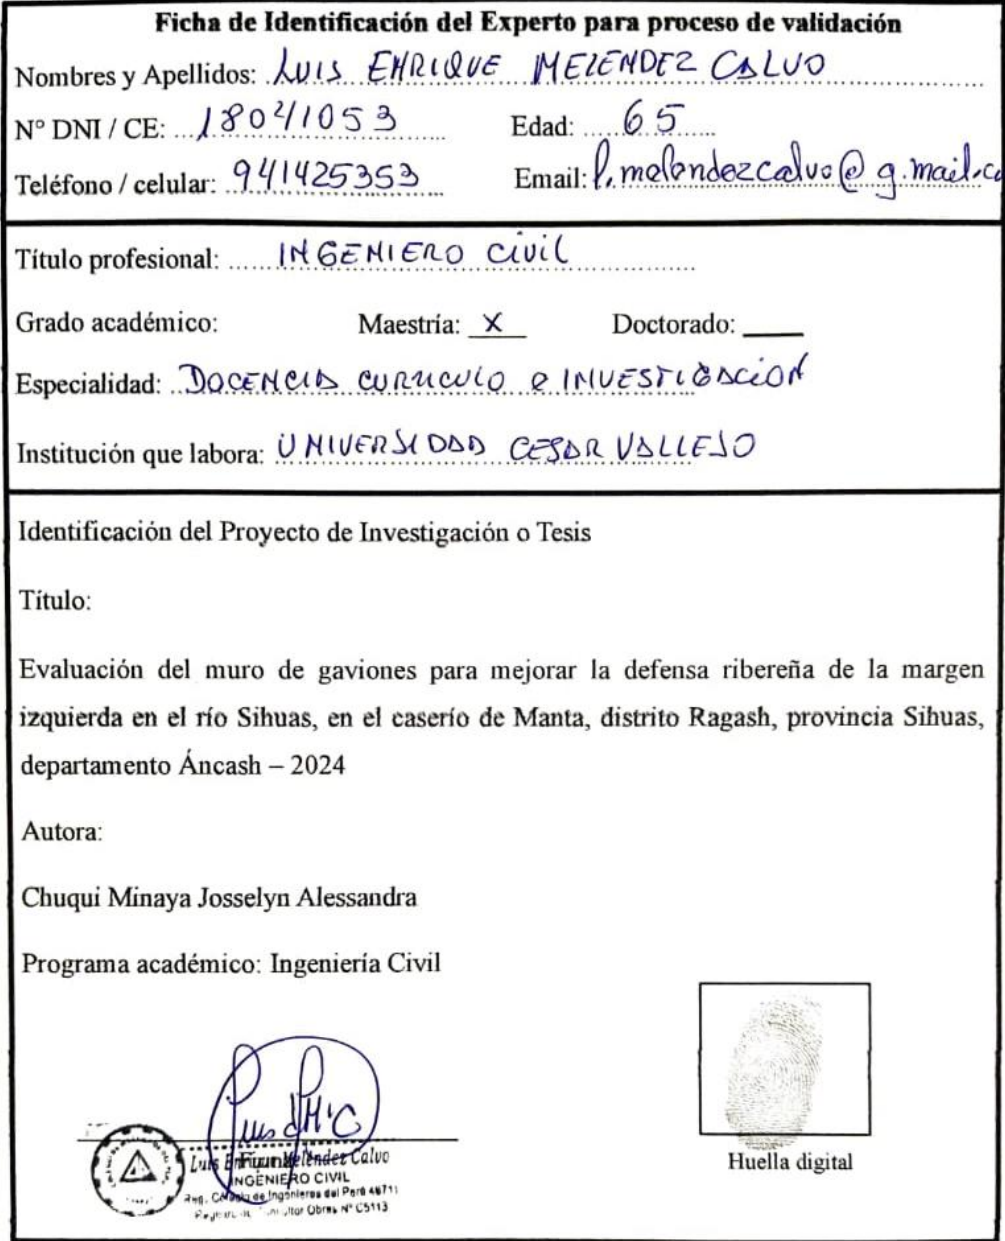 Ficha de Identificación del Experto para proceso de validación
Nombres y Apellidos: LUIS ENRIQUE MELENDEZ CALVO
N° DNI / CE: 18041053 Edad: 65
Teléfono / celular: 941425353 Email: l.melendezcalvo@g.mail.co
Título profesional: INGENIERO CIVIL
Grado académico: Maestría: X Doctorado:
Especialidad: DOCENCIA CURRICULO e INVESTIGACION
Institución que labora: UNIVERSIDAD CESAR VALLEJO
Identificación del Proyecto de Investigación o Tesis
Título:
Evaluación del muro de gaviones para mejorar la defensa ribereña de la margen
izquierda en el río Sihuas, en el caserío de Manta, distrito Ragash, provincia Sihuas,
departamento Áncash – 2024
Autora:
Chuqui Minaya Josselyn Alessandra
Programa académico: Ingeniería Civil
Firma
Luis Enrique Meléndez Calvo
INGENIERO CIVIL
Reg. Colegio de Ingenieros del Perú 46711
Obras N° C5113
Huella digital